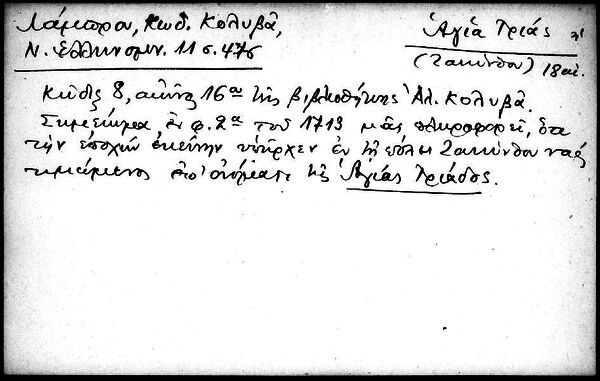 Λάμπρου, Κωδ. Κολυβᾶ,
Ν. Ἑλληνομν. 11 σ. 476
Ἁγία Τριάς
(Ζακύνθου) 18 αἰ.
Κῶδιξ 8, αἰῶνος 16ου τῆς βιβλιοθήκης Ἀλ. Κολυβᾶ.
Σημείωμα ἐν φ. 2α τοῦ 1713 μᾶς πληροφορεῖ, ὅτι
τὴν ἐποχὴν ἐκείνην ὑπῆρχεν ἐν τῇ πόλει Ζακύνθου ναὸς
τιμώμενος ἐπ' ὀνόματι τῆς Ἁγίας Τριάδος.